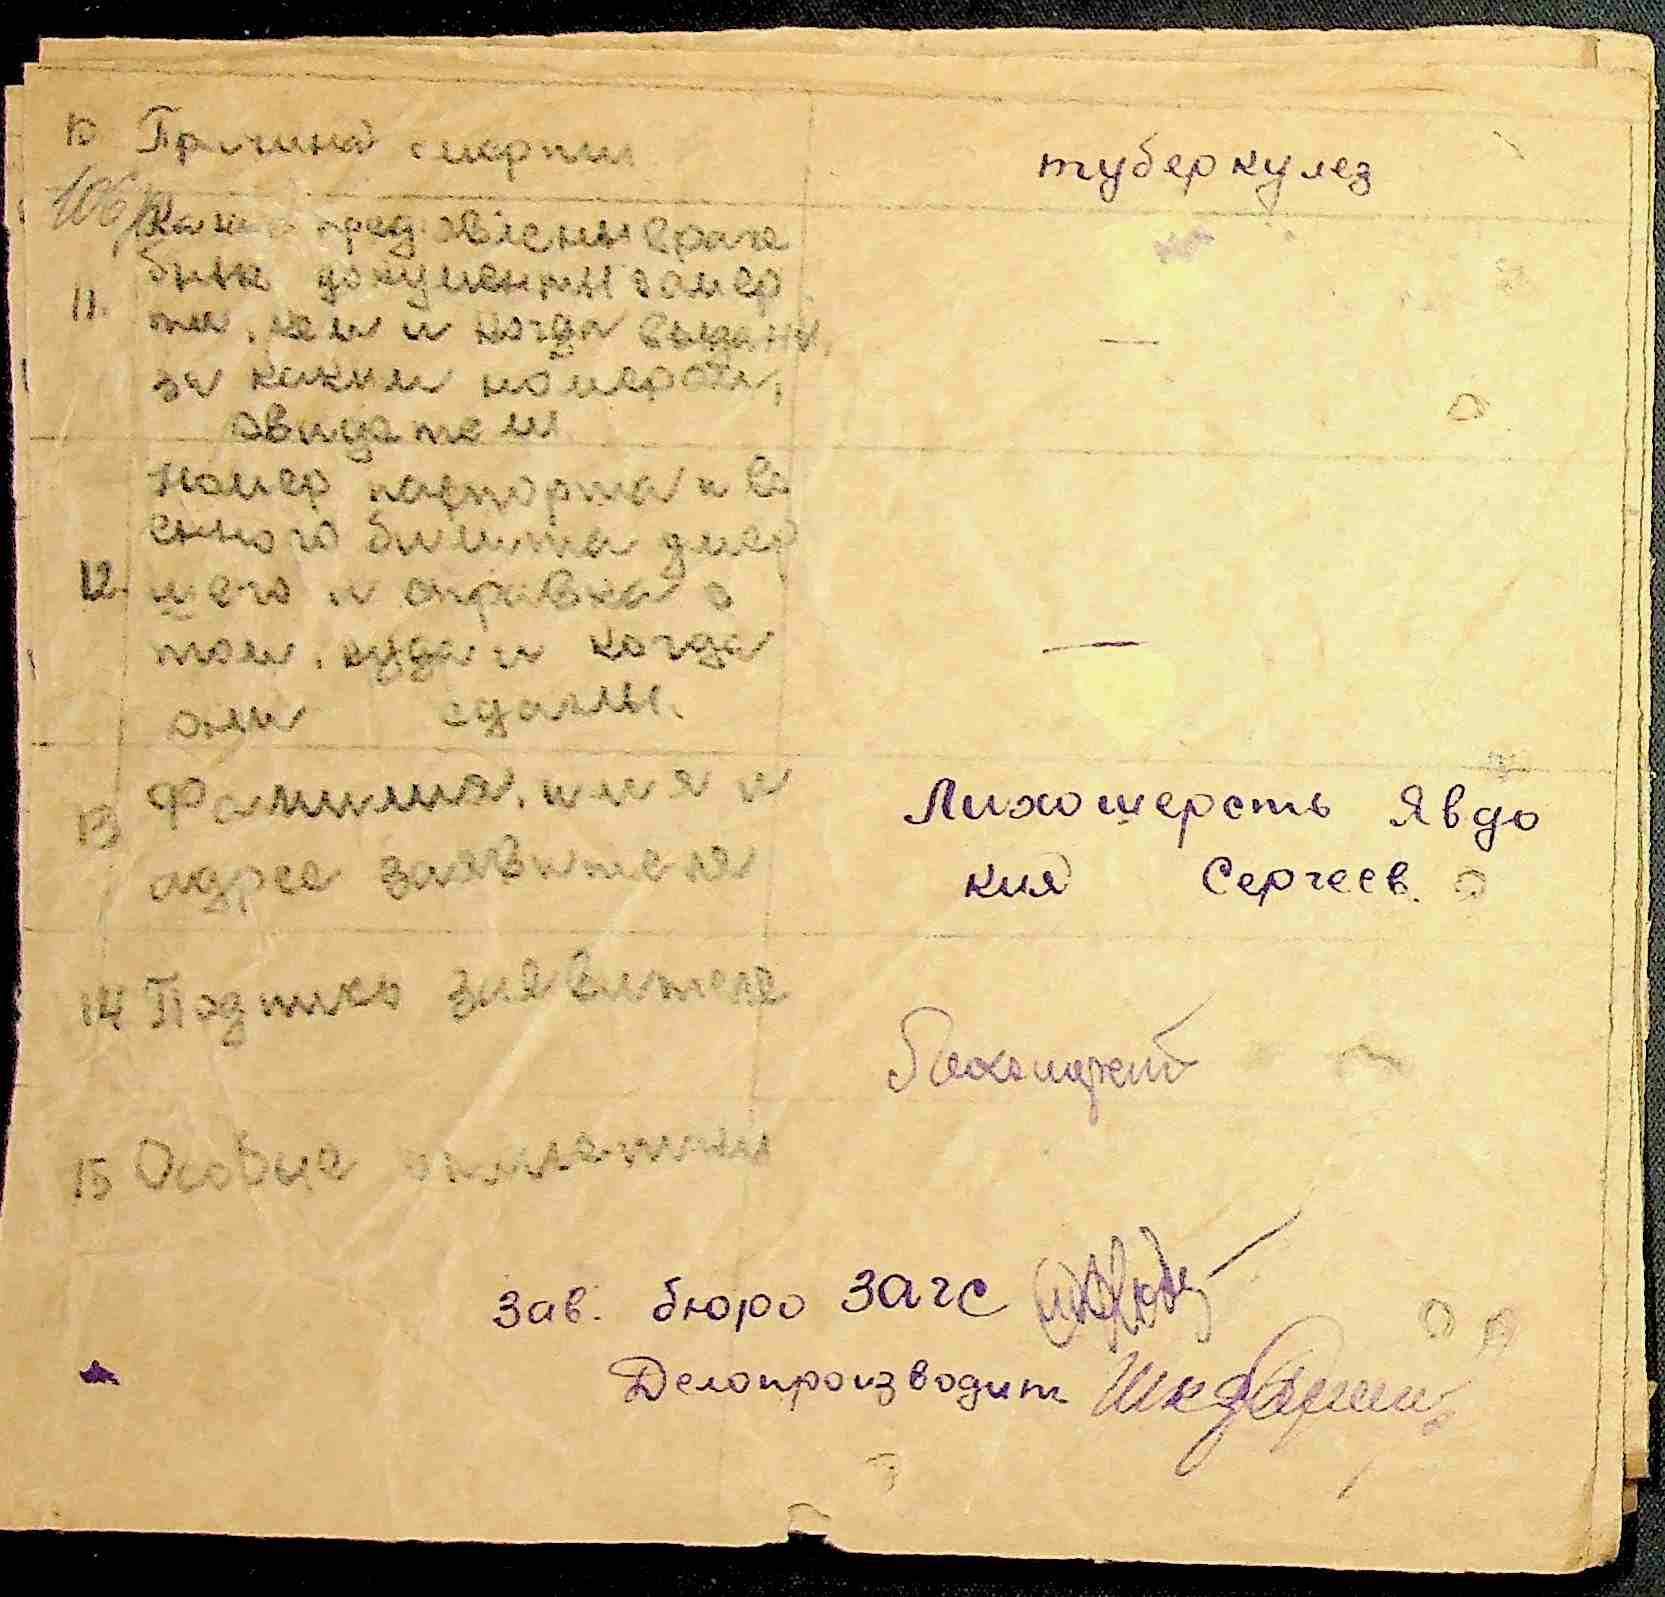 10 Причина смерти
туберкулез
106
Какие предъявлены враче
бные документы о смер
11. ти, кем и когда выданы,
за каким номером,
Номер паспорта и во
енного билета умер
12. шего и справка о
том, куда и когда
они сданы.
13 Фамилия, имя и
адрес заявителя
Лихошерсть Явдо
кия Сергеев.
14 Подпись заявителя
15 Особые отметки
Зав. бюро ЗАГС
Делопроизводит